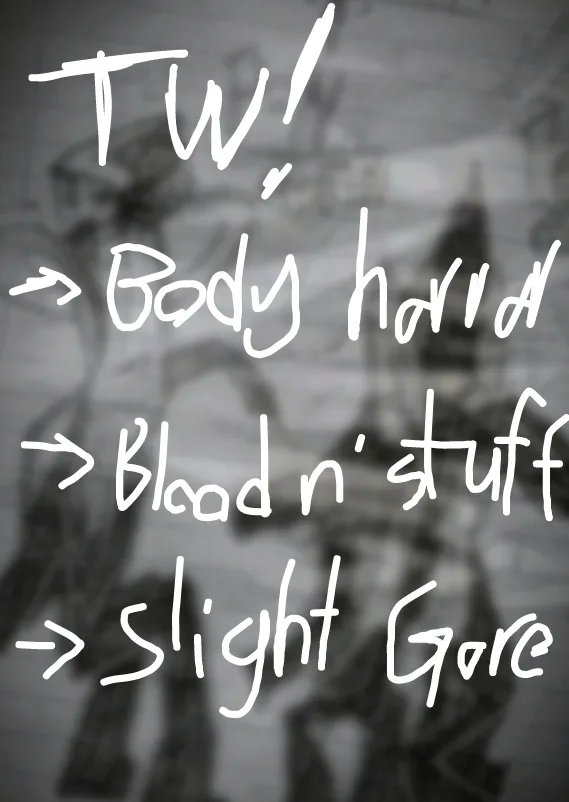 TW!
→ Body horror
→ Blood n' stuff
→ Slight Gore